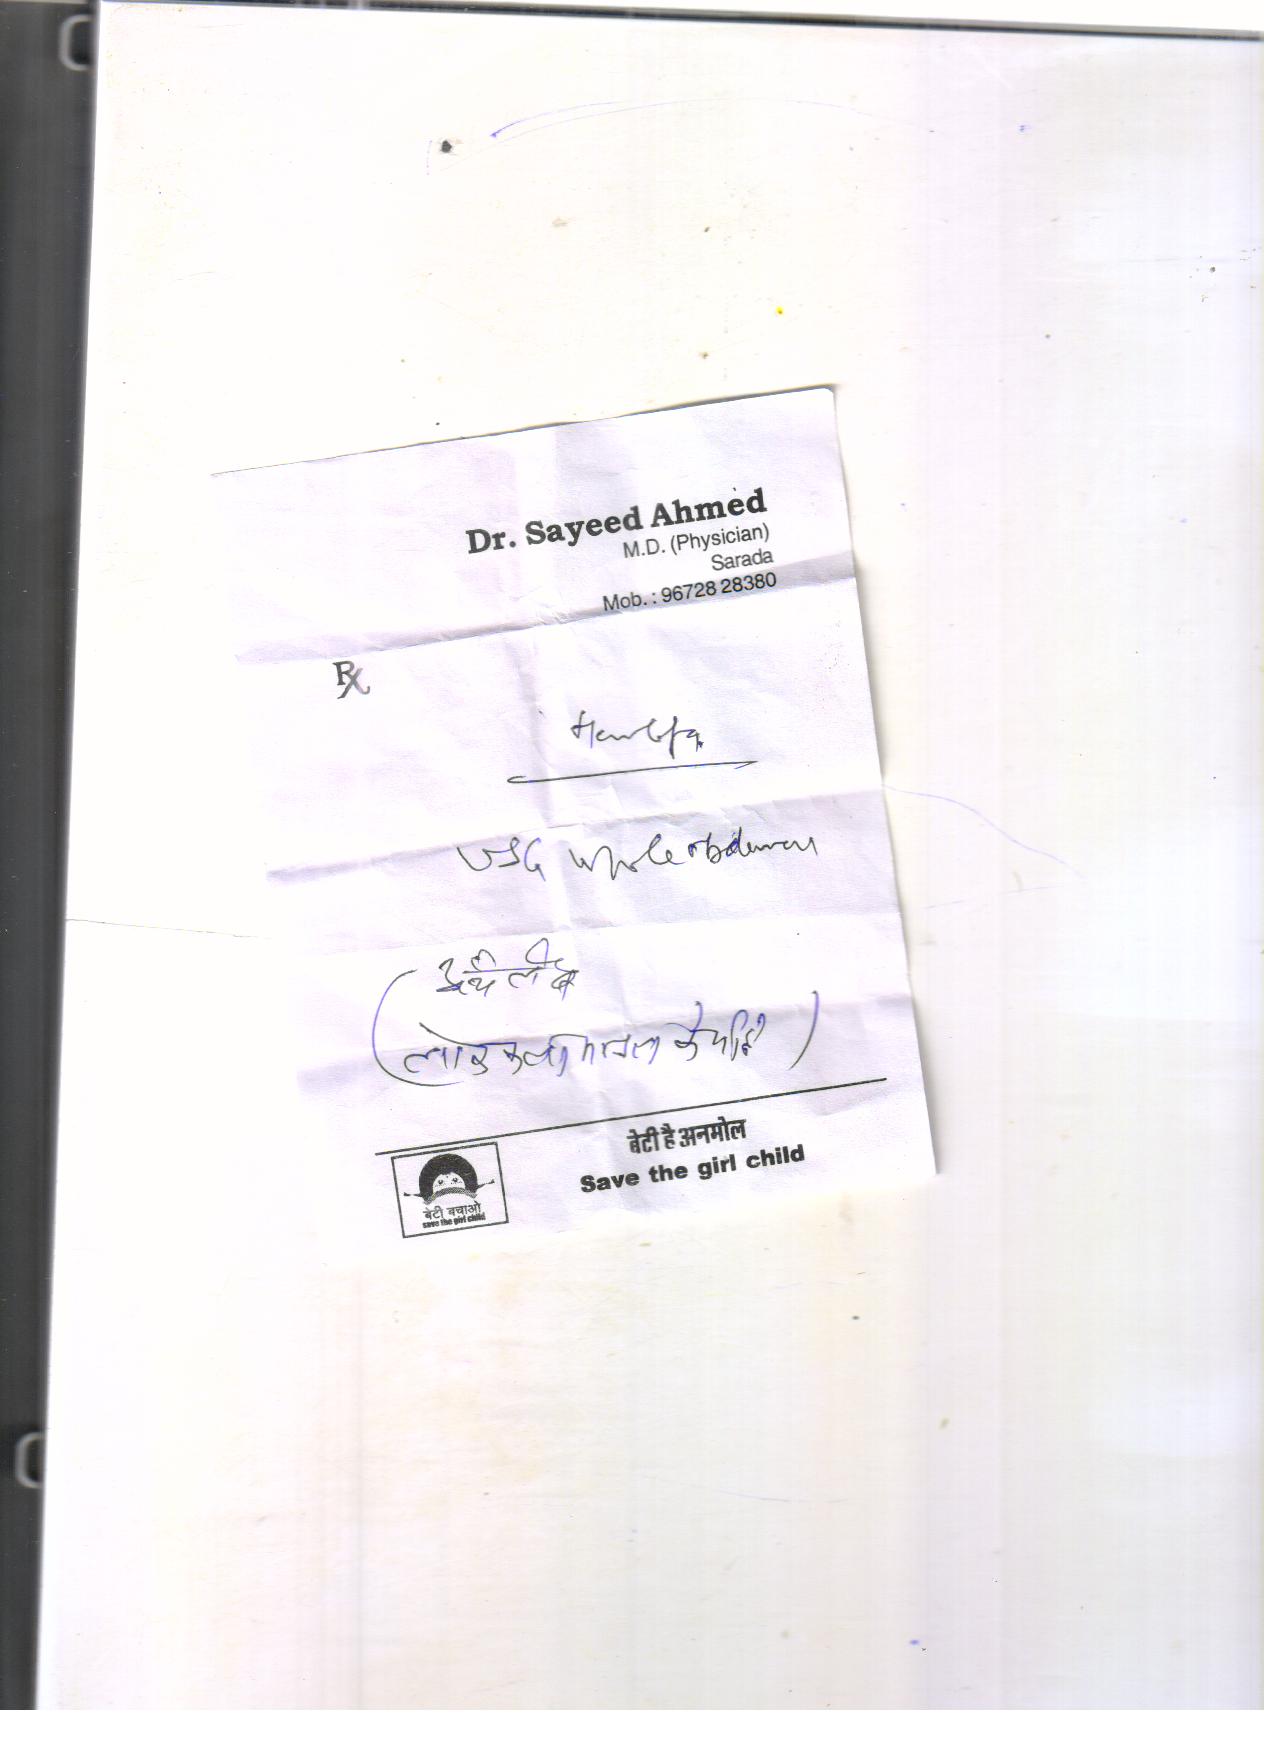 Dr. Sayeed Ahmed
M.D. (Physician)
Sarada
Mob. : 96728 28380
Rx
USG Whole abdomen
के
बेटी है अनमोल
Save the girl child
बेटी बचाओ
save the girl child